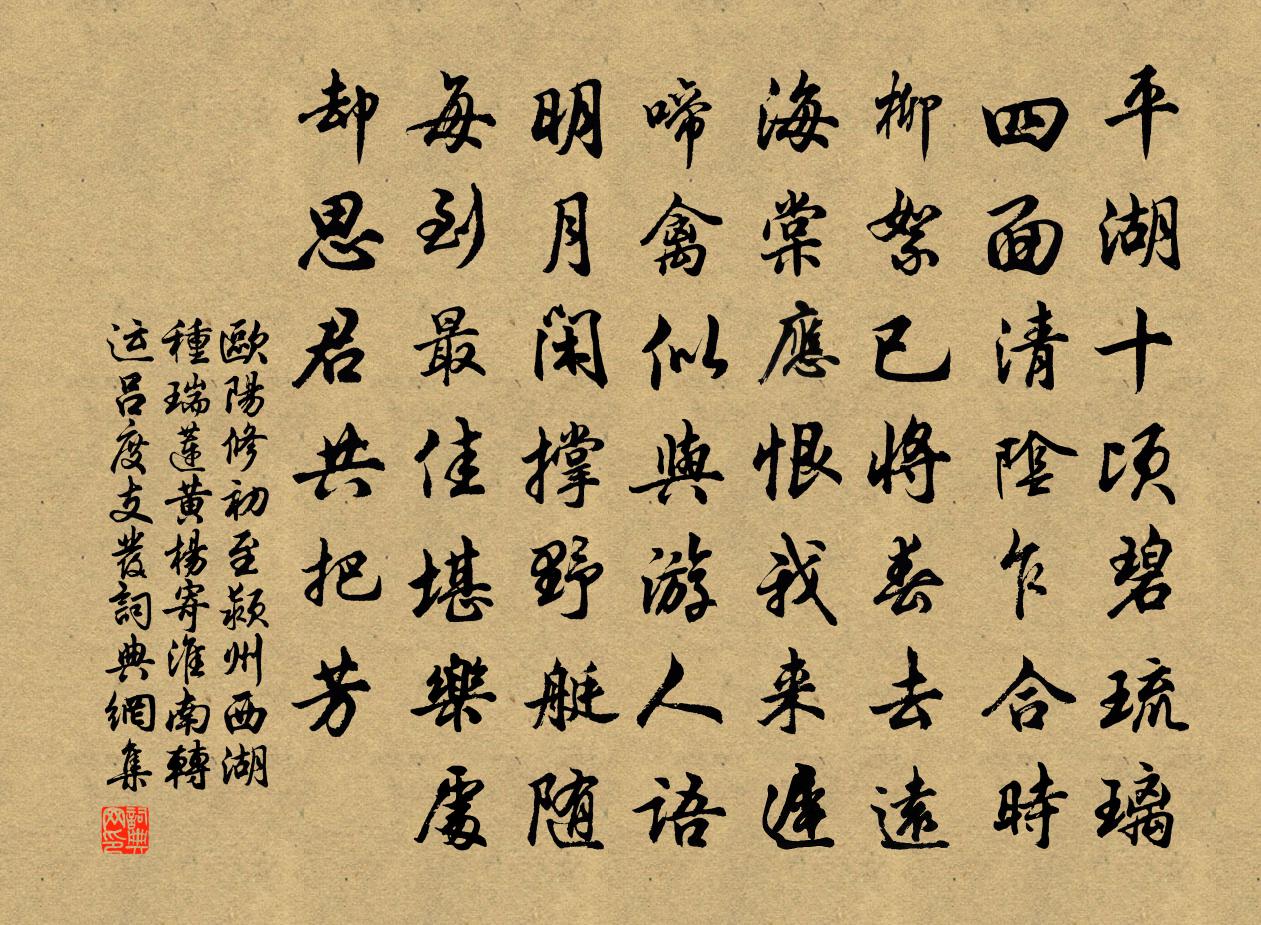 平湖十頃碧琉璃
四面清陰乍合時
柳絮已將春去遠
海棠應恨我来遲
啼禽似與游人語
明月閑撑野艇隨
每到最佳堪樂處
却思君共把芳
歐陽修初至潁州西湖
種瑞蓮黄楊寄淮南轉
运吕度支發詞典網集
詞典网印